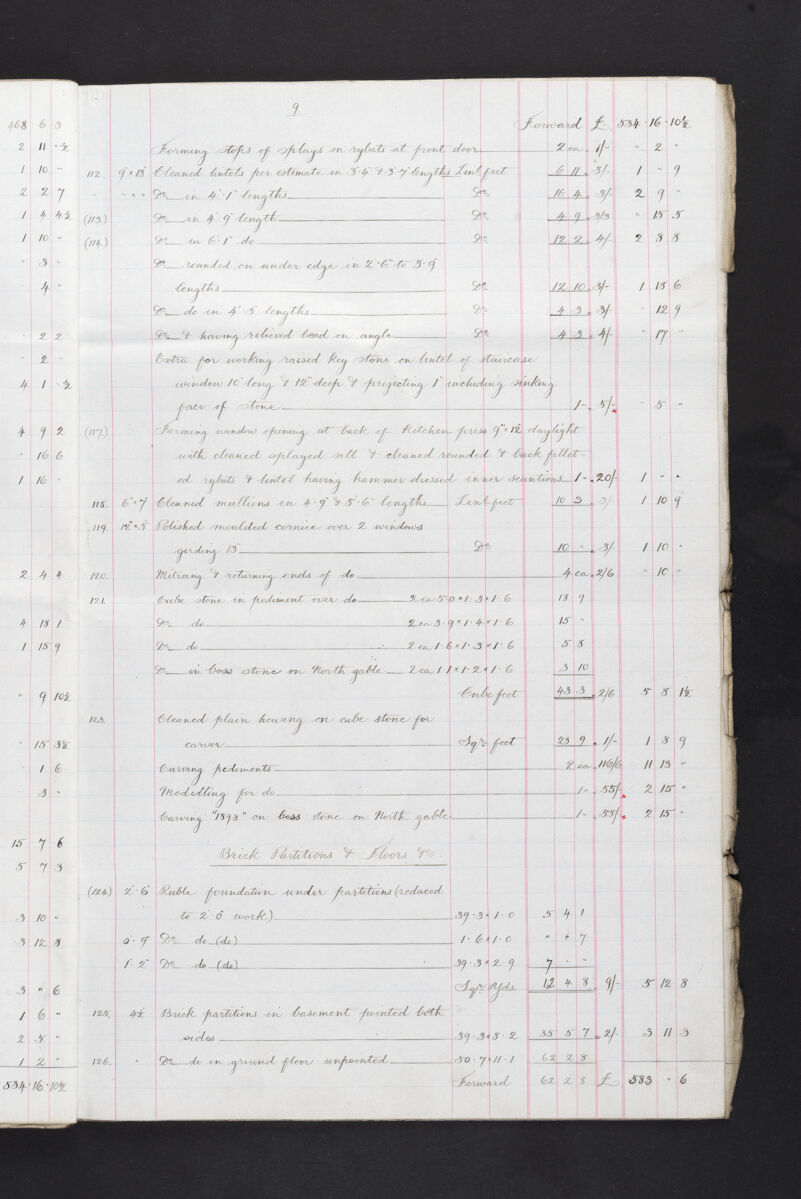 468 · 6 · 3
2 11 · ½
1 10 "
2 2 7
1 4 4½
1 10 "
" 3 "
" 4 "
" 2 2
" 2 "
4 1 · ½
4 9 2
" 16 6
1 16 "
2 4 4
4 18 1
1 15 9
" 9 10½
" 15 3½
" 1 6
" 3 "
15 7 6
5 7 3
3 10 "
3 12 8
3 " 6
1 6 "
2 5 "
1 2 "
534 · 16 · 10½
9
Forward £ 534 · 16 · 10½
Forming stops of splays on rybats at front door 2 ea 1/- " 2 "
112. 9"×13" Cleaned lintels per estimate in 3'·4" & 3'·7" lengths Linl feet 6 11 3/- 1 " 9
" " " " Do in 4'·1" lengths Do 16 4 3/- 2 9 "
(113.) Do in 4'·9" length Do 4 9 3/3 " 15 5
(114.) Do in 6'·1" do Do 12 2 4/- 2 8 8
Do rounded on under edge in 2'·6" to 3'·9"
lengths Do 12 10 3/- 1 18 6
Do do in 4'·3" lengths Do 4 3 3/- " 12 9
Do & having relieved bead on angle Do 4 3 4/- " 17 "
Extra for working raised key stone on lintel of staircase
window 10" long & 12" deep & projecting 1" including sinking
face of stone 1- 5/- " 5 "
(117.) Forming window opening at back of Kitchen press 9"×12" daylight
with cleaned splayed sill & cleaned rounded & back fillet-
ed rybats & lintel having hammer dressed inner scuntions 1- 20/- 1 " "
118. 6"×7" Cleaned mullions in 4'·9" & 5'·6" lengths Linl feet 10 3 3/- 1 10 9
119. 12"×5" Polished moulded cornice over 2 windows
girding 15" Do 10 " 3/- 1 10 "
120. Mitreing & returning ends of do 4 ea 2/6 " 10 "
121. Cube stone in pediment over do 2 ea 5·0×1·3×1·6 18 9
Do do 2 ea 3·9×1·4×1·6 15 "
Do do 2 ea 1·6×1·3×1·6 5 8
Do in boss stone on North gable 2 ea 1·1×1·2×1·6 3 10
Cube feet 43 3 2/6 5 8 1½
123. Cleaned plain hewing on cube stone for
carver Sqre feet 28 9 1/- 1 8 9
Carving pediments 2 ea 116/6 11 13 "
Modelling for do 1- 55/- 2 15 "
Carving "1898" on boss stone on North gable 1- 55/- 2 15 "
Brick Partitions & Floors &c
(124) 2'·6" Ruble foundation under partitions (reduced
to 2'·0" work) 39·3×1·0 5 4 1
Do do (do) 1·6×1·0 " " 7
1'·2" Do do (do) 39·3×2·9 7 " "
Sqre Yds. 12 4 8 9/- 5 12 8
125. 4½ Brick partitions in basement pointed both
sides 39·3×8·2 35 5 7 2/- 3 11 3
126. " Do do in ground floor unpointed 50·7×11·1 62 2 8
Forward 62 2 8 £ 583 " 6